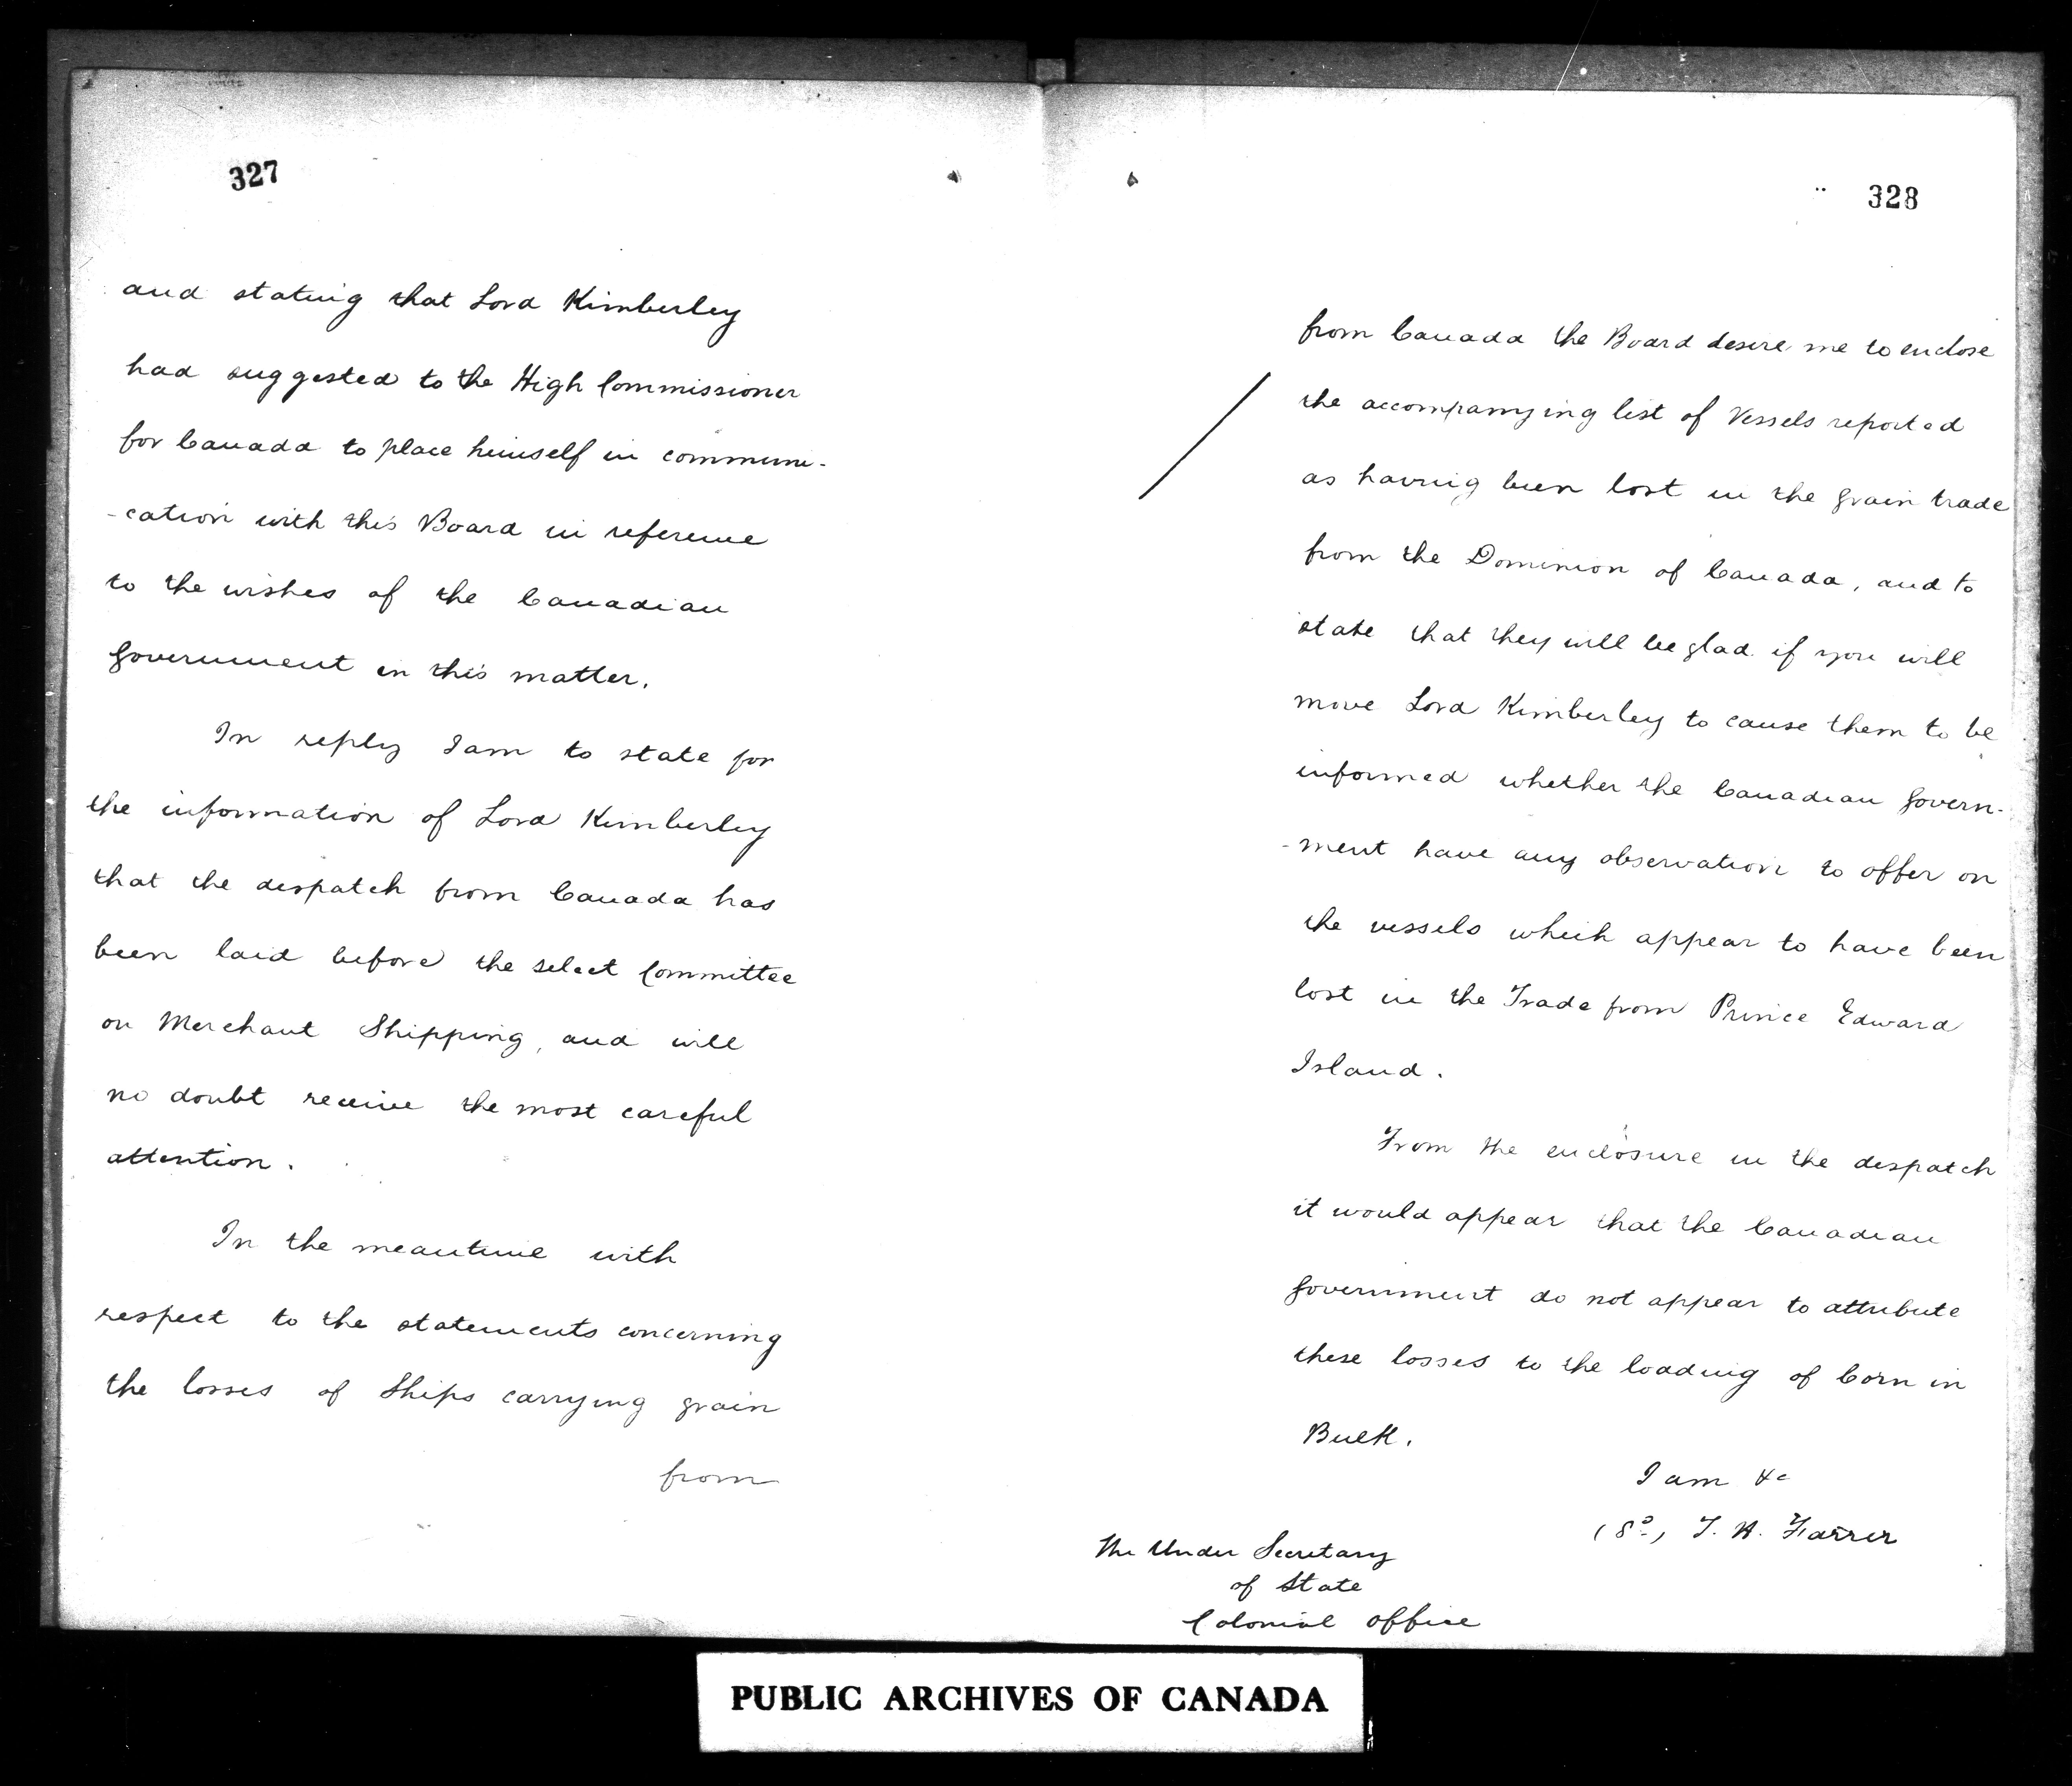 327
and stating that Lord Kimberley
had suggested to the High Commissioner
for Canada to place himself in communi-
-cation with this Board in reference
to the wishes of the Canadian
Government in this matter.
In reply I am to state for
the information of Lord Kimberley
that the despatch from Canada has
been laid before the select Committee
on Merchant Shipping, and will
no doubt receive the most careful
attention.
In the meantime with
respect to the statements concerning
the losses of Ships carrying grain
from
328
from Canada the Board desire me to enclose
the accompanying list of Vessels reported
as having been lost in the grain trade
from the Dominion of Canada, and to
state that they will be glad if you will
move Lord Kimberley to cause them to be
informed whether the Canadian Govern-
-ment have any observation to offer on
the vessels which appear to have been
lost in the Trade from Prince Edward
Island.
From the enclosure in the despatch
it would appear that the Canadian
Government do not appear to attribute
these losses to the loading of Corn in
Bulk.
I am &c
(Sd.) T. H. Farrer
The Under Secretary
of State
Colonial Office
PUBLIC ARCHIVES OF CANADA